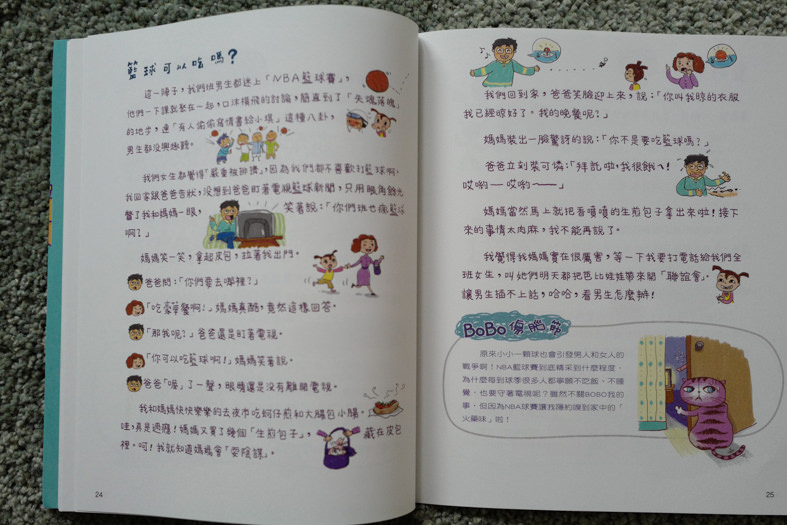 籃球可以吃嗎？
這一陣子，我們班男生都迷上「NBA籃球賽」，
他們一下課就聚在一起，口沫橫飛的討論，簡直到了「失魂落魄」
的地步，連「有人偷偷寫情書給小琪」這種八卦，
男生都沒興趣聽。
我們女生都覺得「嚴重被排擠」，因為我們都不喜歡打籃球啊。
我回家跟爸爸告狀，沒想到爸爸盯著電視籃球新聞，只用眼角餘光
瞥了我和媽媽一眼，笑著說：「你們班也瘋籃球
啊？」
媽媽笑一笑，拿起皮包，拉著我出門。
爸爸問：「你們要去哪裡？」
「吃豪華餐啊！」媽媽真酷，竟然這樣回答。
「那我呢？」爸爸還是盯著電視。
「你可以吃籃球啊！」媽媽笑著說。
爸爸「喔」了一聲，眼睛還是沒有離開電視。
我和媽媽快快樂樂的去夜市吃蚵仔煎和大腸包小腸，
哇，真是過癮！媽媽又買了幾個「生煎包子」，藏在皮包
裡。呵！我就知道媽媽會「耍陰謀」。
24
我們回到家，爸爸笑臉迎上來，說：「你叫我晾的衣服
我已經晾好了。我的晚餐呢？」
媽媽裝出一臉驚訝的說：「你不是要吃籃球嗎？」
爸爸立刻裝可憐：「拜託啦，我很餓ㄟ！
哎喲——哎喲～——」
媽媽當然馬上就把香噴噴的生煎包子拿出來啦！接下
來的事情太肉麻，我不能再說了。
我覺得我媽媽實在很厲害，等一下我要打電話給我們全
班女生，叫她們明天都把芭比娃娃帶來開「聯誼會」，
讓男生插不上話，哈哈，看男生怎麼辦！
BoBo傷腦筋
原來小小一顆球也會引發男人和女人的
戰爭啊！NBA籃球賽到底精采到什麼程度，
為什麼每到球季很多人都寧願不吃飯、不睡
覺，也要守著電視呢？雖然不關BOBO我的
事，但因為NBA球賽讓我隱約嗅到家中的「
火藥味」啦！
25